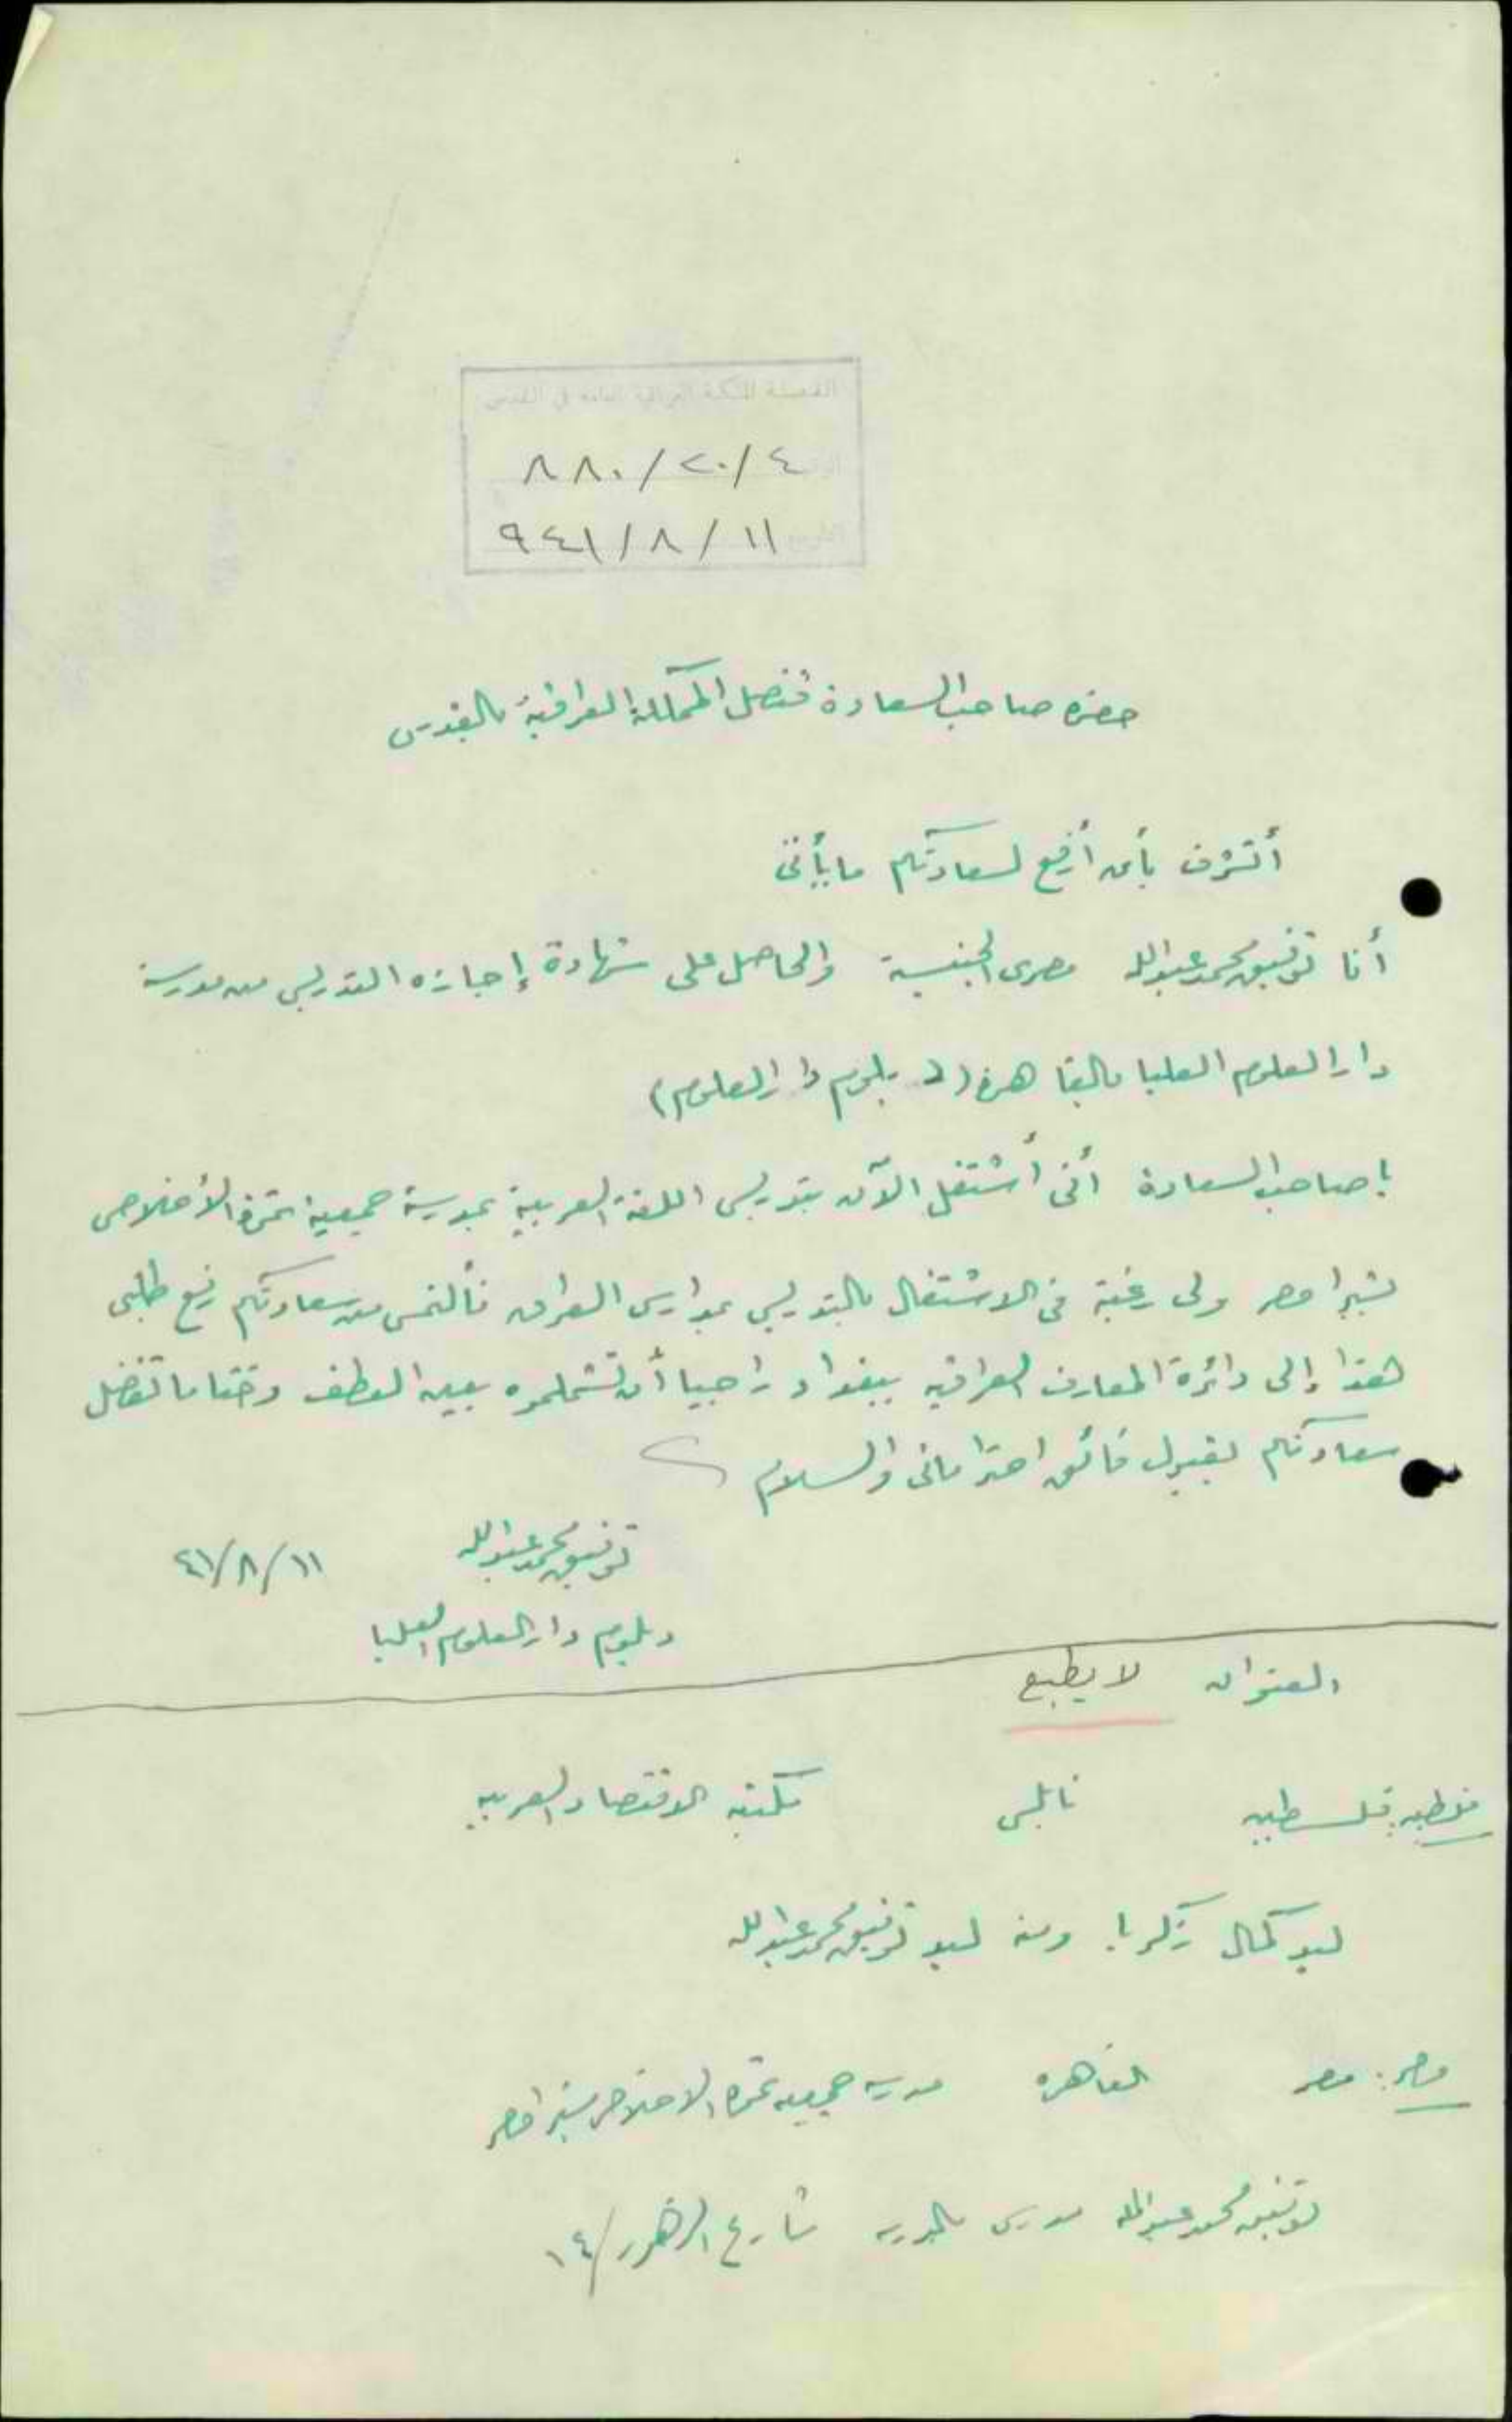 القنصلية الملكية العراقية العامة في القدس
٨٨٠/٢٠/٤
التاريخ ٩٤١/٨/١١
حضرة صاحب السعادة قنصل المملكة العراقية بالقدس
أتشرف بأن أرفع لسعادتكم ما يأتى
أنا توفيق محمد عبدالله مصرى الجنسية والحاصل على شهادة إجازة التدريس من مدرسة
دار العلوم العليا بالقاهرة (دبلوم دار العلوم)
يا صاحب السعادة أنى أشتغل الآن بتدريس اللغة العربية بمدرسة جمعية ثمرة الأخلاص
بشبرا مصر ولى رغبة فى الاشتغال بالتدريس بمدارس العراق فألتمس من سعادتكم رفع طلبى
هذا إلى دائرة المعارف العراقية ببغداد راجيا أن تشملموه بعين العطف وختاما تفضل
سعادتكم بقبول فائق احتراماتى والسلام
توفيق محمد عبدالله ٤١/٨/١١
دبلوم دار العلوم العليا
العنوان لا يطبع
فلسطين نابلس مكتبة الاقتصاد العربية
ليد كمال زكريا ومنه ليد توفيق محمد عبدالله
مصر: مصر القاهرة مدرسة جمعية ثمرة الاخلاص بشبرا مصر
توفيق محمد عبدالله مدرس بالمدرسة شارع الزهور/١٤